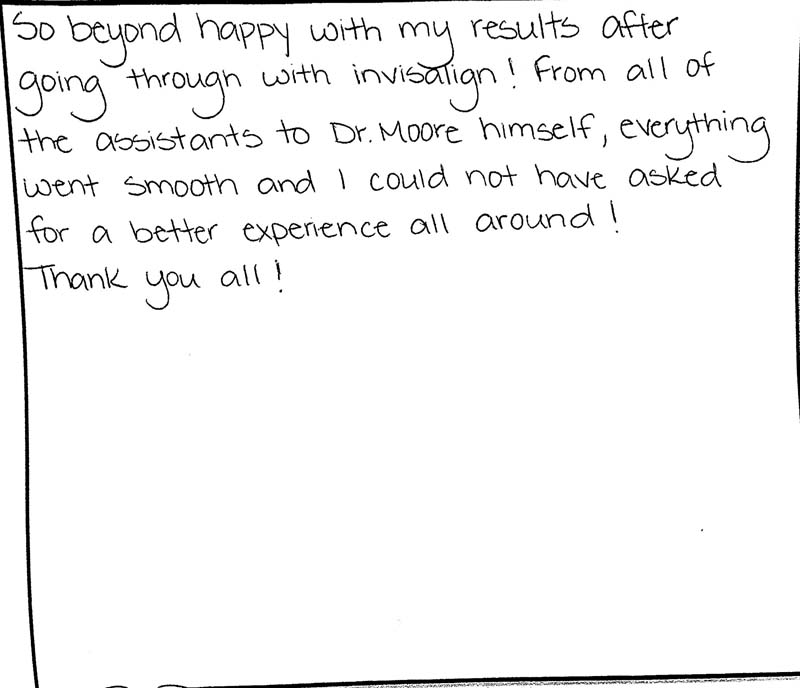 So beyond happy with my results after
going through with invisalign! From all of
the assistants to Dr. Moore himself, everything
went smooth and I could not have asked
for a better experience all around!
Thank you all!